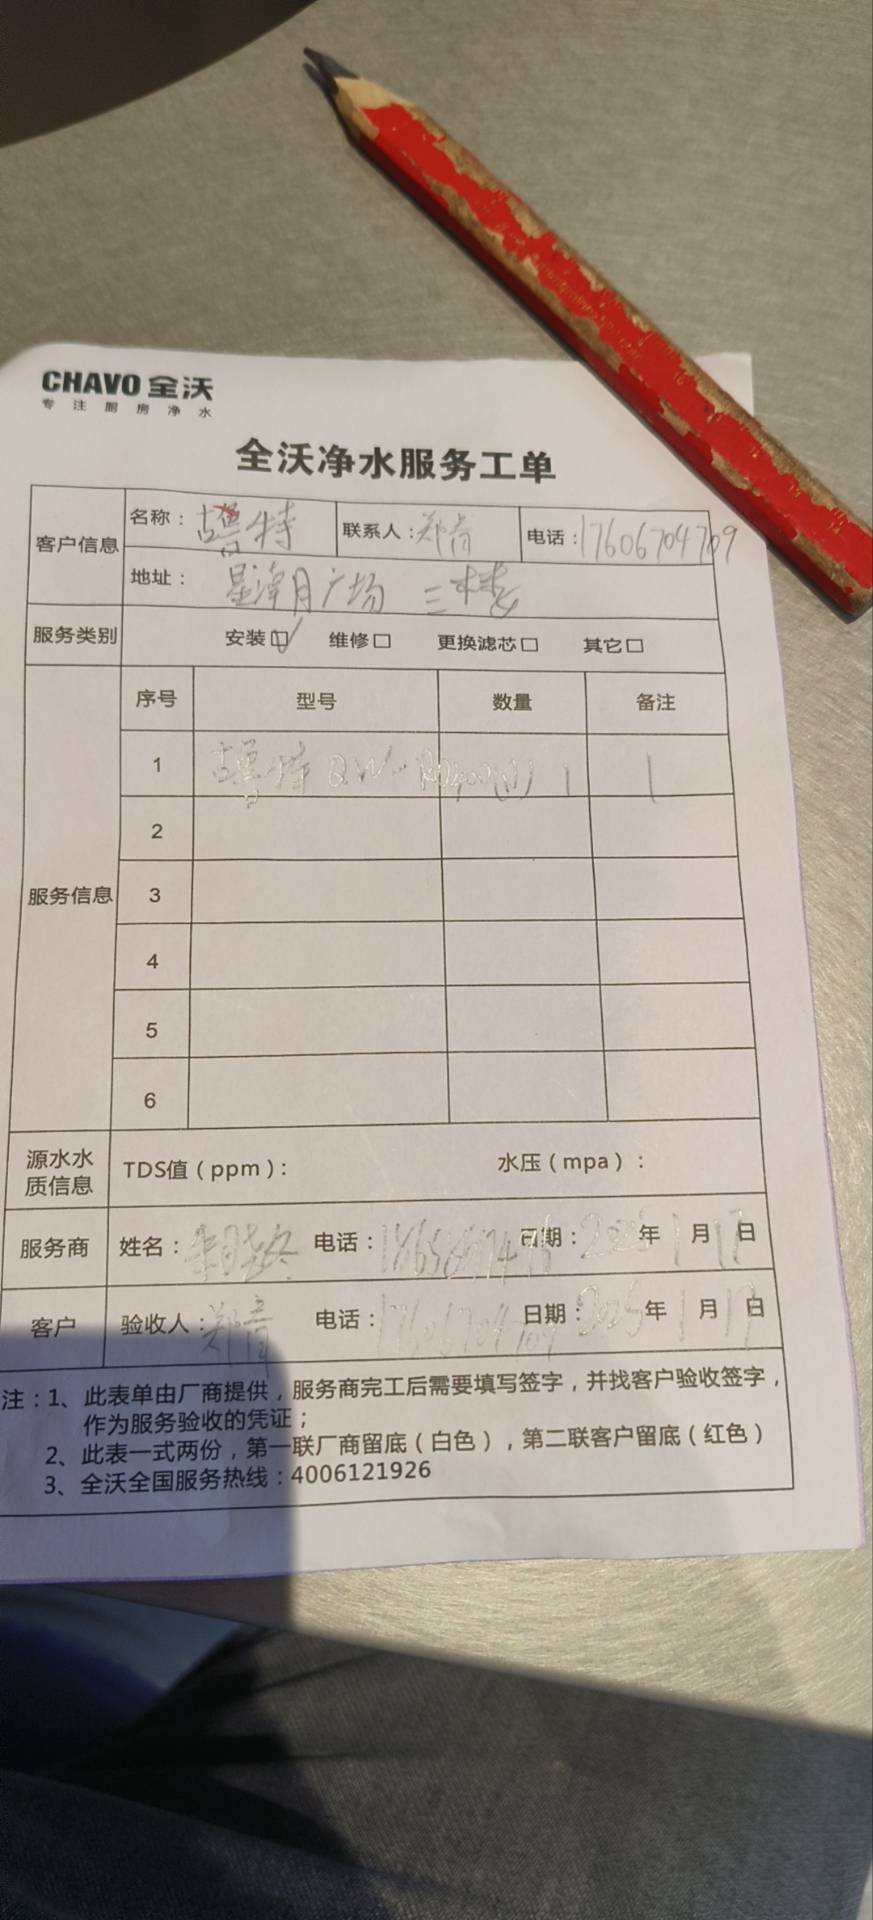 CHAVO 全沃
专注厨房净水
全沃净水服务工单
客户信息 名称：古鲁特 联系人：郑青 电话：17606704709
地址：星泽月广场 三楼
服务类别 安装☑ 维修□ 更换滤芯□ 其它□
服务信息 序号 型号 数量 备注
1 古鲁特 QW-RO400(1) 1
2
3
4
5
6
源水水质信息 TDS值（ppm）： 水压（mpa）：
服务商 姓名： 电话： 日期：2025年1月17日
客户 验收人：郑青 电话：17606704709 日期：2025年1月17日
注：1、此表单由厂商提供，服务商完工后需要填写签字，并找客户验收签字，
作为服务验收的凭证；
2、此表一式两份，第一联厂商留底（白色），第二联客户留底（红色）
3、全沃全国服务热线：4006121926